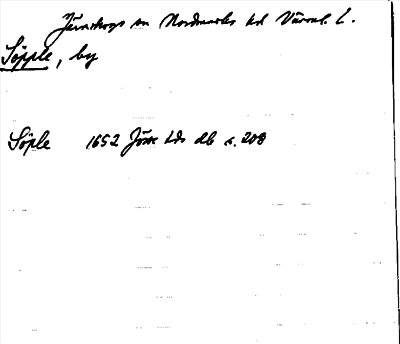 Järnskogs sn Nordmarks hd Värml. l.
Söpple, by
Söple 1652 Jösse hds db s. 208